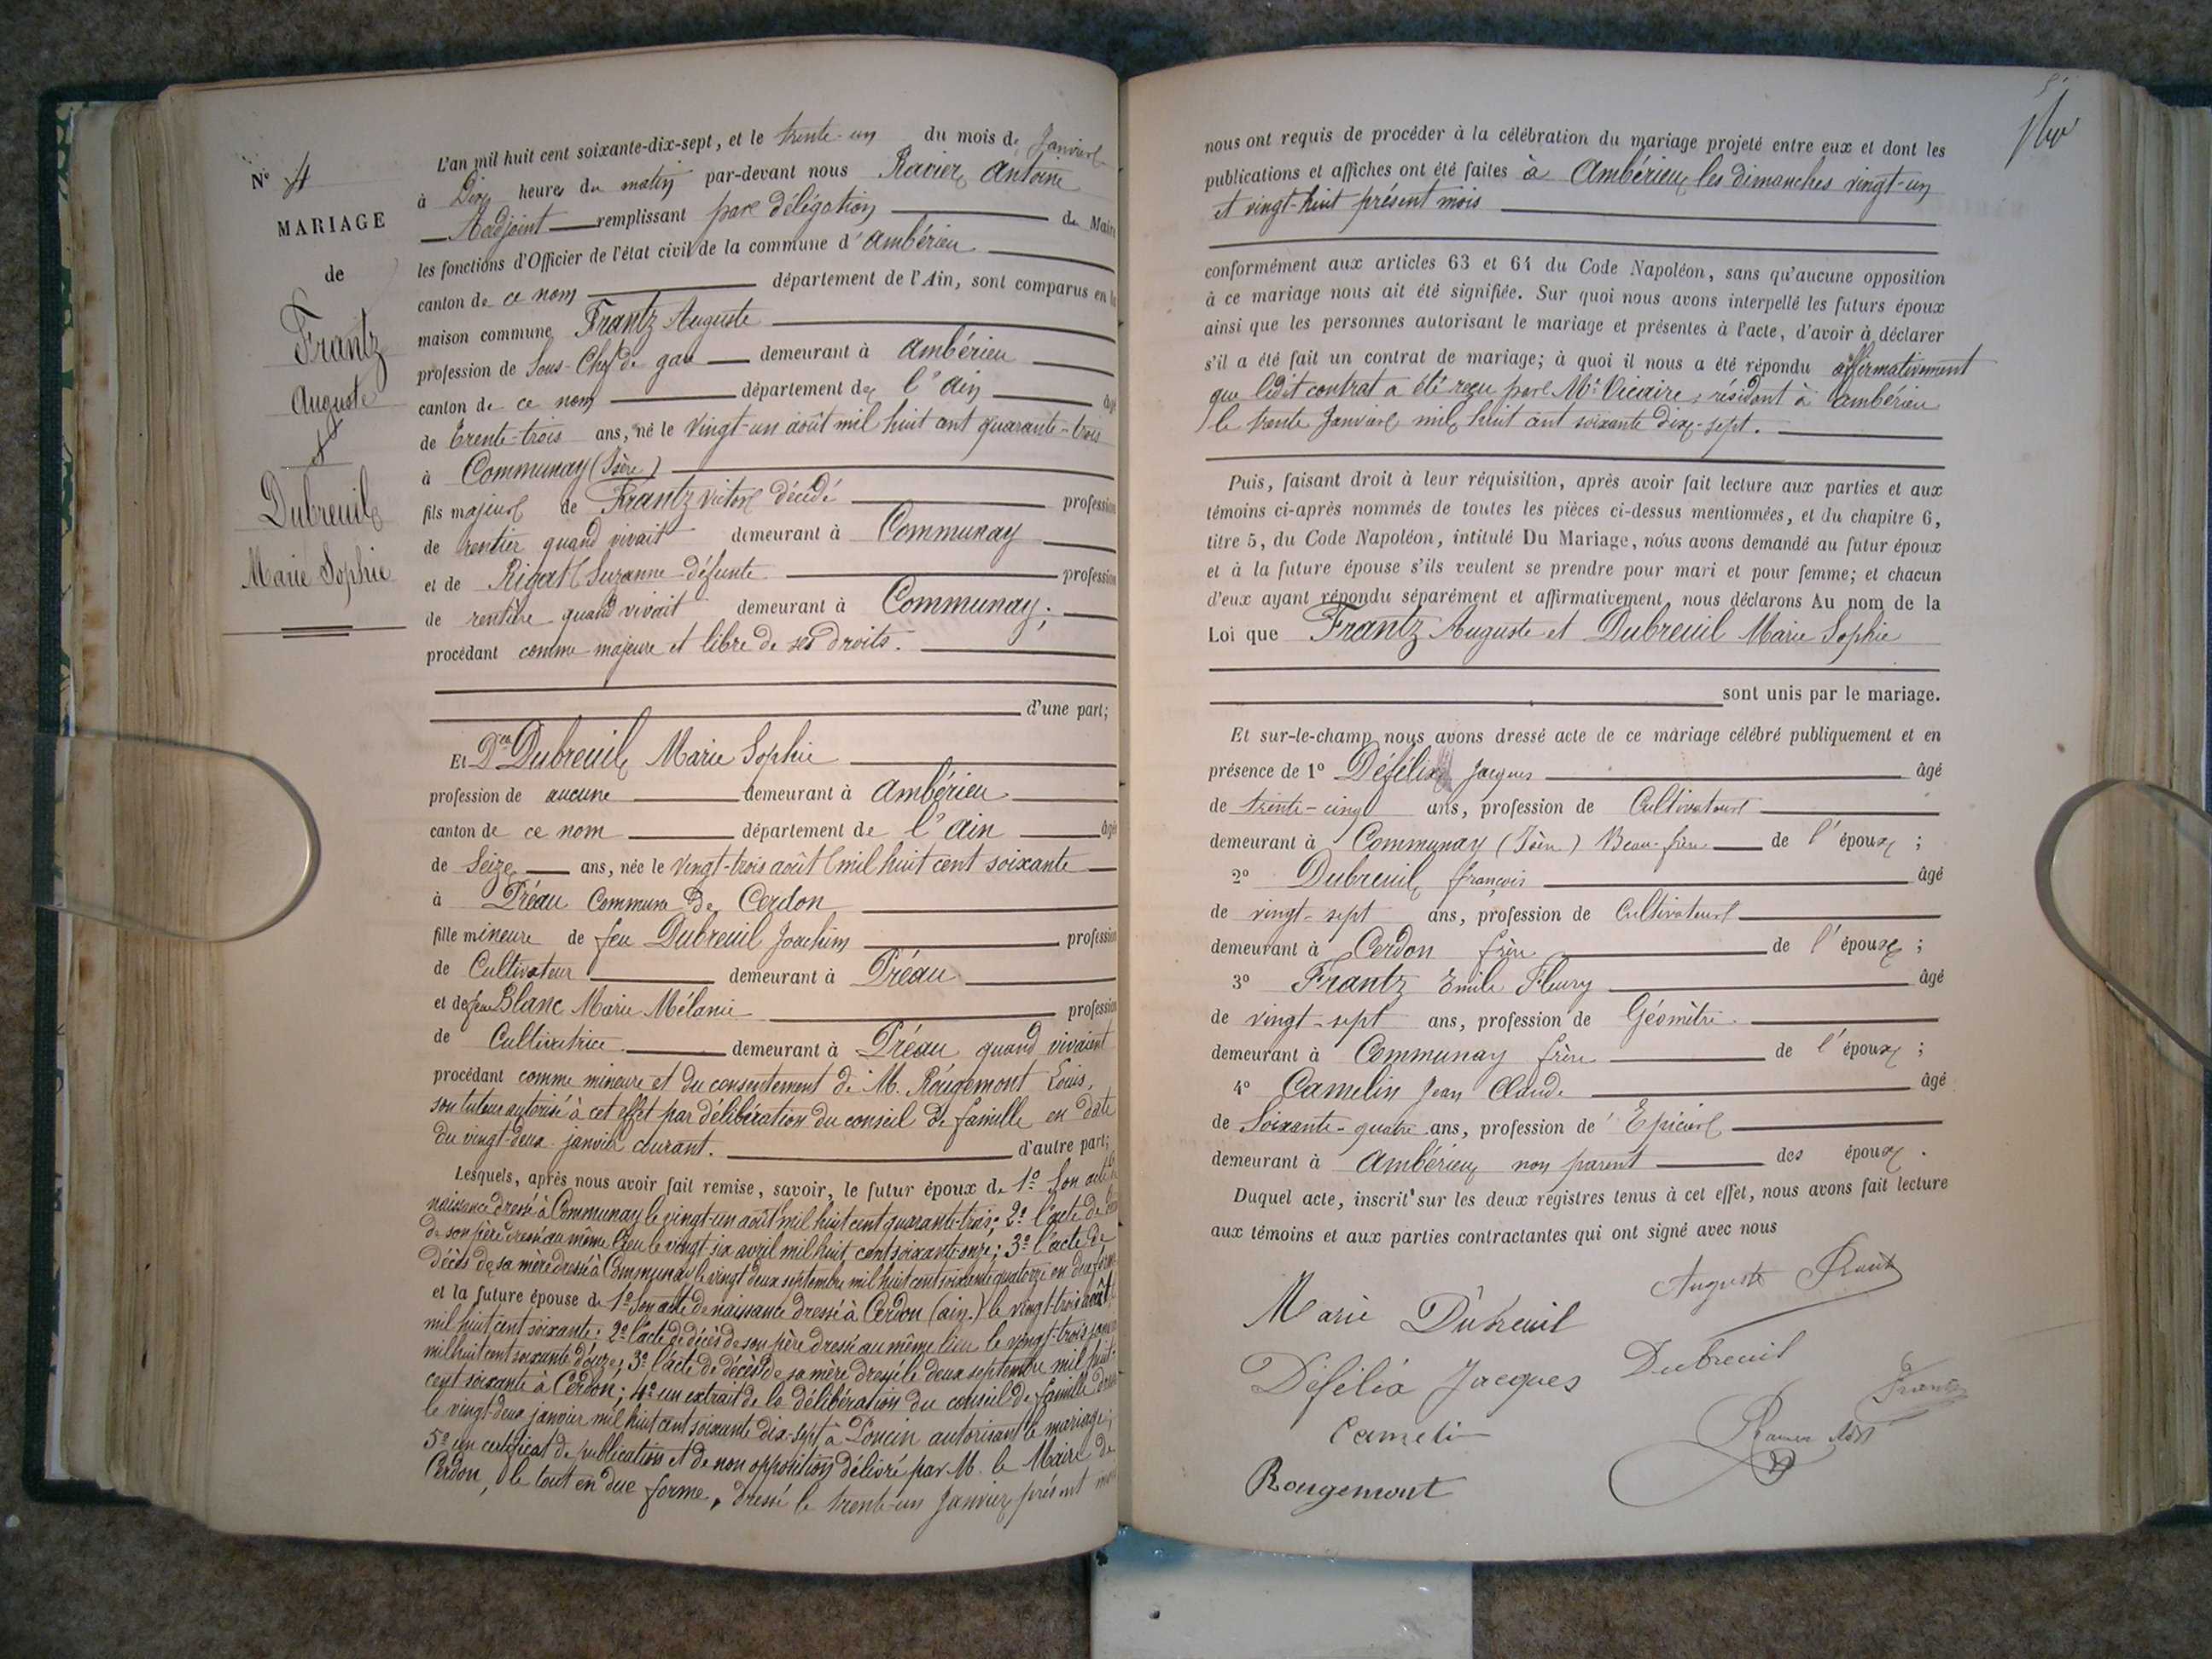 N° 4
MARIAGE
de
Frantz
Auguste
&
Dubreuil
Marie Sophie
L'an mil huit cent soixante-dix-sept, et le trente-un du mois de Janvier
à Dix heures du matin par-devant nous Ravier Antoine
Adjoint remplissant par délégation de Maire
les fonctions d'Officier de l'état civil de la commune d'Ambérieu
canton de ce nom département de l'Ain, sont comparus en la
maison commune Frantz Auguste
profession de Sous-Chef de gare demeurant à Ambérieu
canton de ce nom département de l'Ain âgé
de trente-trois ans, né le vingt-un août mil huit cent quarante-trois
à Communay (Isère)
fils majeur de Frantz Victor décédé profession
de rentier quand vivait demeurant à Communay
et de Rigat Suzanne défunte profession
de rentière quand vivait demeurant à Communay;
procédant comme majeure et libre de ses droits.
d'une part;
Et Dlle Dubreuil Marie Sophie
profession de aucune demeurant à Ambérieu
canton de ce nom département de l'Ain âgée
de Seize ans, née le vingt-trois août mil huit cent soixante
à Préau Commune de Cerdon
fille mineure de feu Dubreuil Joachim profession
de Cultivateur demeurant à Préau
et de feue Blanc Marie Mélanie profession
de Cultivatrice demeurant à Préau quand vivaient
procédant comme mineure et du consentement de M. Rougemont Louis,
son tuteur autorisé à cet effet par délibération du conseil de famille en date
du vingt-deux janvier courant. d'autre part;
Lesquels, après nous avoir fait remise, savoir, le futur époux de 1° Son acte de
naissance dressé à Communay le vingt-un août mil huit cent quarante-trois; 2° l'acte de décès
de son père dressé au même lieu le vingt-six avril mil huit cent soixante-onze; 3° l'acte de
décès de sa mère dressé à Communay le vingt deux septembre mil huit cent soixante quatorze en due forme
et la future épouse de 1° Son acte de naissance dressé à Cerdon (ain) le vingt-trois août
mil huit cent soixante; 2° l'acte de décès de son père dressé au même lieu le vingt-trois janvier
mil huit cent soixante douze; 3° l'acte de décès de sa mère dressé le deux septembre mil huit
cent soixante à Cerdon; 4° un extrait de la délibération du conseil de famille dressé
le vingt-deux janvier mil huit cent soixante dix-sept, à Poncin autorisant le mariage;
5° un certificat de publication et de non opposition délivré par M. le Maire de
Cerdon, le tout en due forme, dressé le trente-un Janvier présent mois
nous ont requis de procéder à la célébration du mariage projeté entre eux et dont les
publications et affiches ont été faites à Ambérieu les dimanches vingt-un
et vingt-huit présent mois
conformément aux articles 63 et 64 du Code Napoléon, sans qu'aucune opposition
à ce mariage nous ait été signifiée. Sur quoi nous avons interpellé les futurs époux
ainsi que les personnes autorisant le mariage et présentes à l'acte, d'avoir à déclarer
s'il a été fait un contrat de mariage; à quoi il nous a été répondu affirmativement
que ledit contrat a été reçu par Me Vicaire, résidant à Ambérieu
le trente Janvier mil huit cent soixante dix-sept.
Puis, faisant droit à leur réquisition, après avoir fait lecture aux parties et aux
témoins ci-après nommés de toutes les pièces ci-dessus mentionnées, et du chapitre 6,
titre 5, du Code Napoléon, intitulé Du Mariage, nous avons demandé au futur époux
et à la future épouse s'ils veulent se prendre pour mari et pour femme; et chacun
d'eux ayant répondu séparément et affirmativement, nous déclarons Au nom de la
Loi que Frantz Auguste et Dubreuil Marie Sophie
sont unis par le mariage.
Et sur-le-champ nous avons dressé acte de ce mariage célébré publiquement et en
présence de 1° Défélix Jacques âgé
de trente-cinq ans, profession de Cultivateur
demeurant à Communay (Isère) Beau-frère de l'époux;
2° Dubreuil françois âgé
de vingt-sept ans, profession de Cultivateur
demeurant à Cerdon frère de l'épouse;
3° Frantz Emile Fleury âgé
de vingt-sept ans, profession de Géomètre
demeurant à Communay frère de l'époux;
4° Camelin Jean Claude âgé
de Soixante-quatre ans, profession de Epicier
demeurant à Ambérieu non parent des époux.
Duquel acte, inscrit sur les deux registres tenus à cet effet, nous avons fait lecture
aux témoins et aux parties contractantes qui ont signé avec nous
Auguste Frantz
Marie Dubreuil
Défélix Jacques Dubreuil
Frantz
Camelin
Ravier Adjt
Rougemont